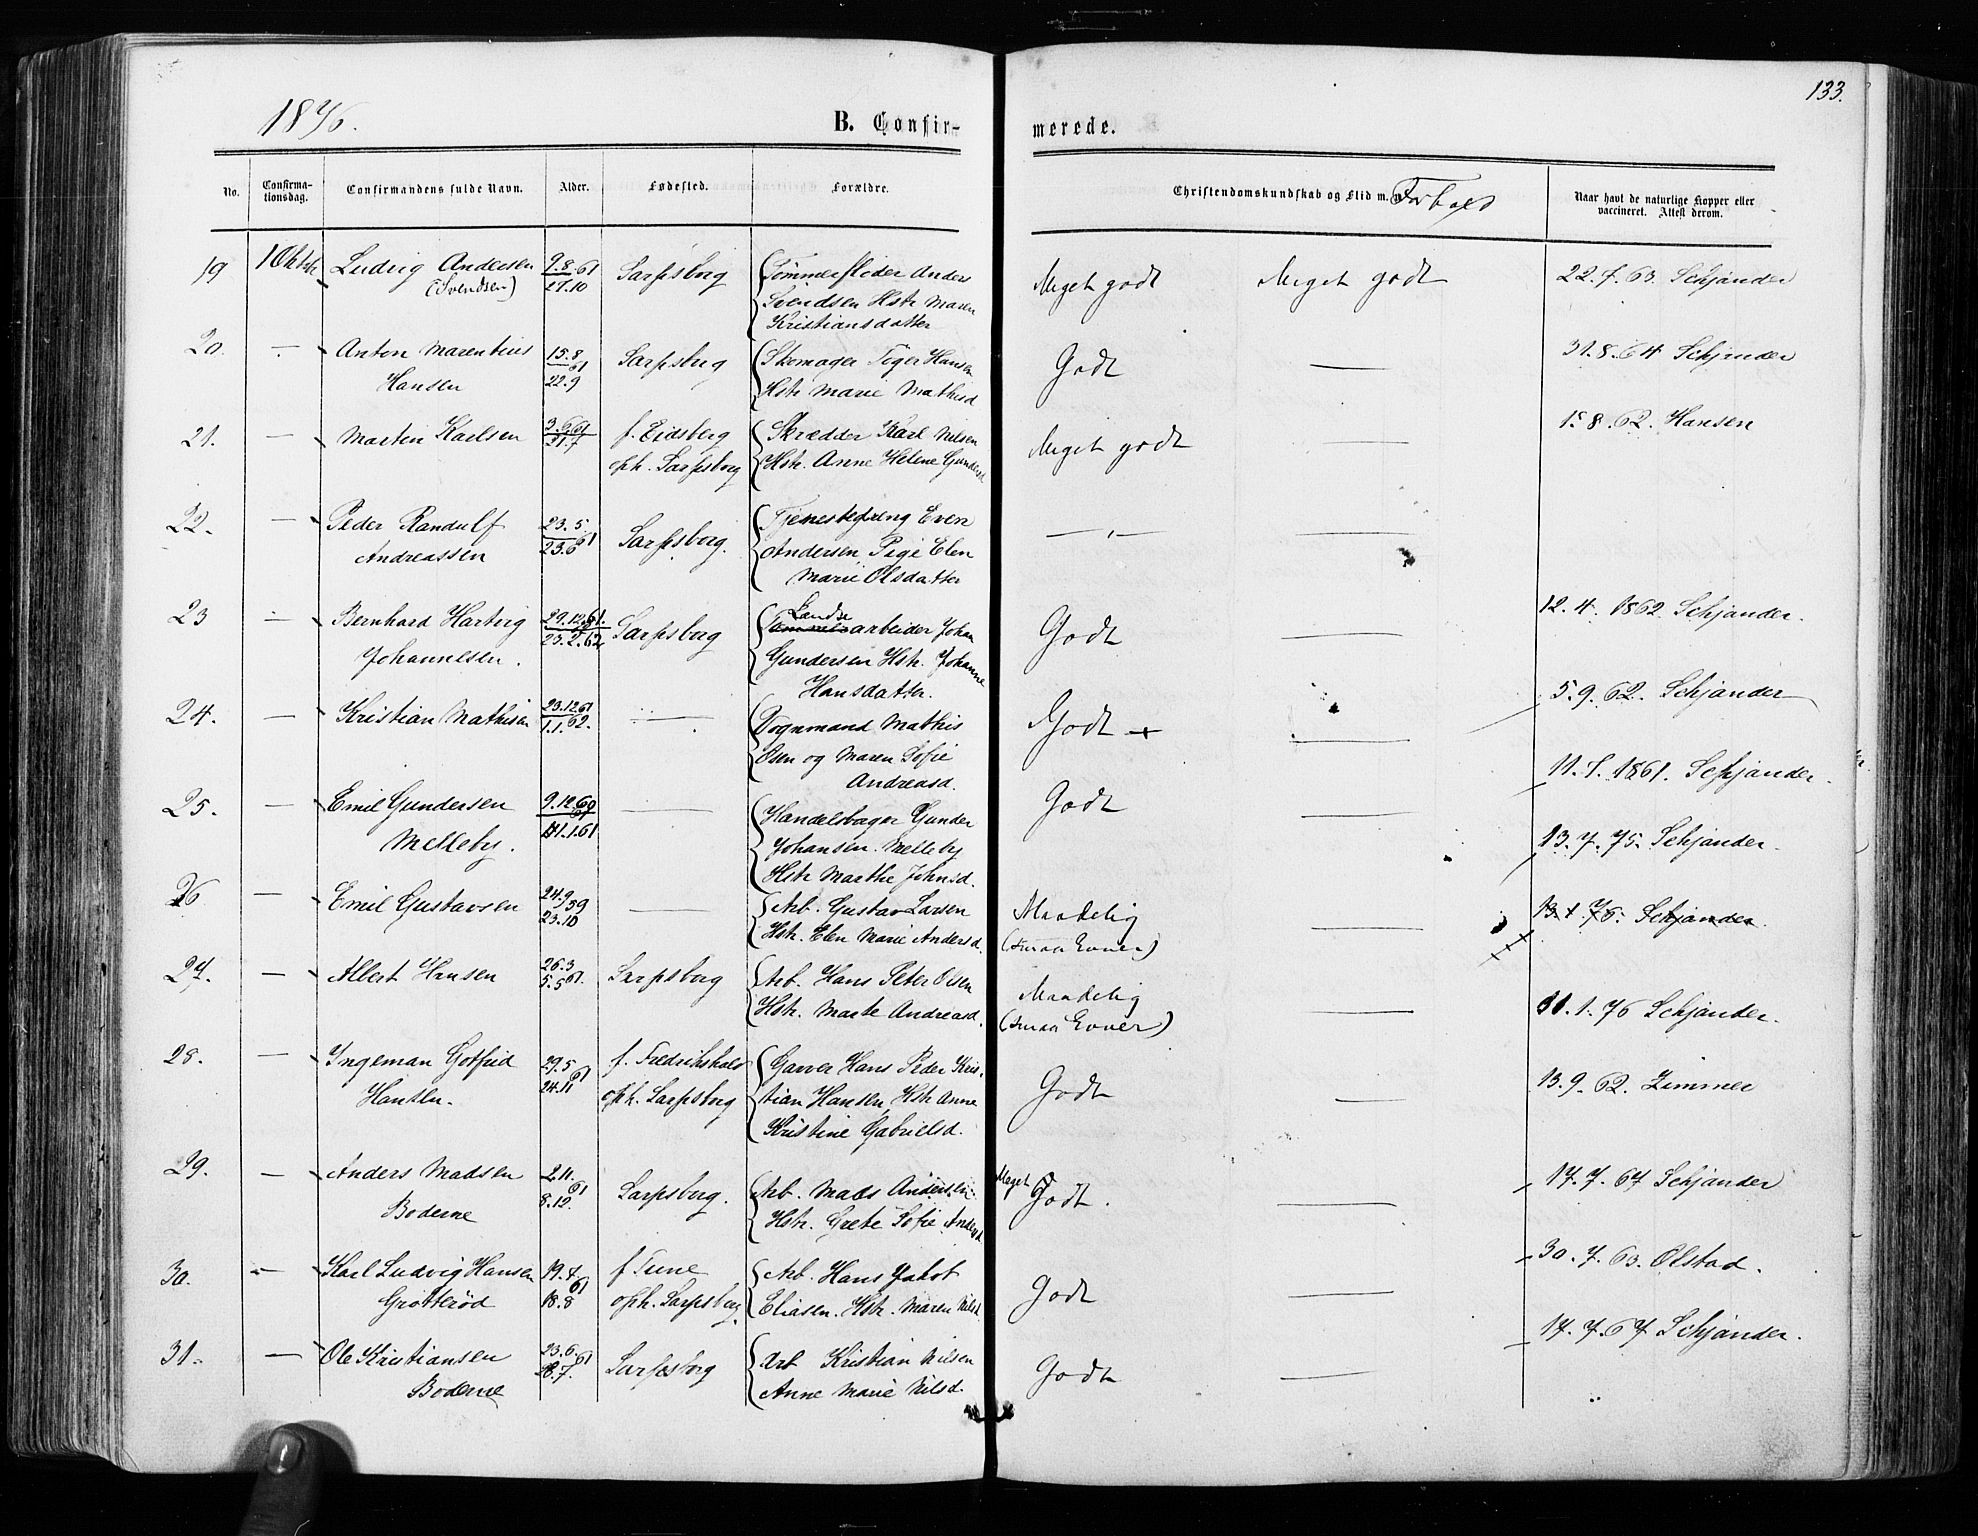 133.
1876.
B. Confir-
merede.
No.
Confirma-
tionsdag.
Confirmandens fulde Navn.
Alder.
Fødested.
Forældre.
Christendomskundskab og Flid m. m.
Forhold
Naar havt de naturlige Kopper eller
vaccineret. Attest derom.
19 1 Oktbr Ludvig Andersen 9.8.61 Sarpsborg Tømmerfløder Anders Meget godt Meget godt 22.7.63. Schjander
(Svendsen) 27.10 Svendsen Hstr Maren
Kristiansdatter
20. — Anton Marentius 15.8 61 Sarpsborg Skomager Hansen Godt — 31.8.64 Schjander
Hansen 22.9 Hstr Marie Mathisd
21. — Martin Karlsen 3.6.61 f. Eidsberg Skrædder Karl Nilsen Meget godt — 15.8.62. Hansen
31.7 oph. Sarpsborg Hstr. Anne Helene Gundersd
22. — Peder Randulf 23.5. 61 Sarpsborg. Even — „ — —
Andreassen 23.6 Andersen, Pige Elen
Marie Olsdatter
23 — Bernhard Hartvig 29.12.61. Sarpsborg arbeider Johan Godt — 12.4.1862 Schjander.
Johannesen. 23.2.62 Gundersen Hstr. Johanne
Hansdatter.
24. — Kristian Mathisen 23.12.61 — Vognmand Mathis Godt — 5.9.62. Schjander
1.1.62. Olsen og Maren Sofie
Andreasd.
25. — Emil Gundersen 9.12.60 — Gunder Godt — 11.7.1861. Schjander.
Melleby. 11.1.61 Johansen Melleby
Hstr Marthe Johnsd.
26 — Emil Gustavsen 24.9 59 — Arb. Gustav Larsen Maadelig — 13.7.75. Schjander.
23.10 Hstr. Elen Marie Andersd. (smaa Evner) 76. Schjander.
27. — Albert Hansen 26.3 61. Sarpsborg Arb. Hans Peter Olsen Maadelig — 11.1.76 Schjander.
5.5 Hstr. Marte Andreasd. (smaa Evner)
28. — Ingeman Gotfred 29.5 61 f. Fredrikshald Garver Hans Peder Kris- Godt — 13.9.62. Zimmer
Hansen. 24.11 oph. Sarpsborg tian Hansen, Hstr Anne
Kristine Gabrielsd.
29. — Anders Madsen 2.11. 61 Sarpsborg. Arb. Mads Andersen Meget Godt. — 17.7.67 Schjander
Boderne 8.12. Hstr. Grete Sofie Andersd.
30. — Karl Ludvig Hansen 19.7 61 f. Tune Arb. Hans Jakob Godt — 30.7.63. Olstad.
Grøtterød 18.8 oph. Sarpsborg. Eliasen. Hstr. Maren Nilsd.
31. — Ole Kristiansen 23.6. 61 Sarpsborg Arb Kristian Nilsen Godt — 17.7.67 Schjander.
Boderne 28.7. Anne Marie Nilsd.